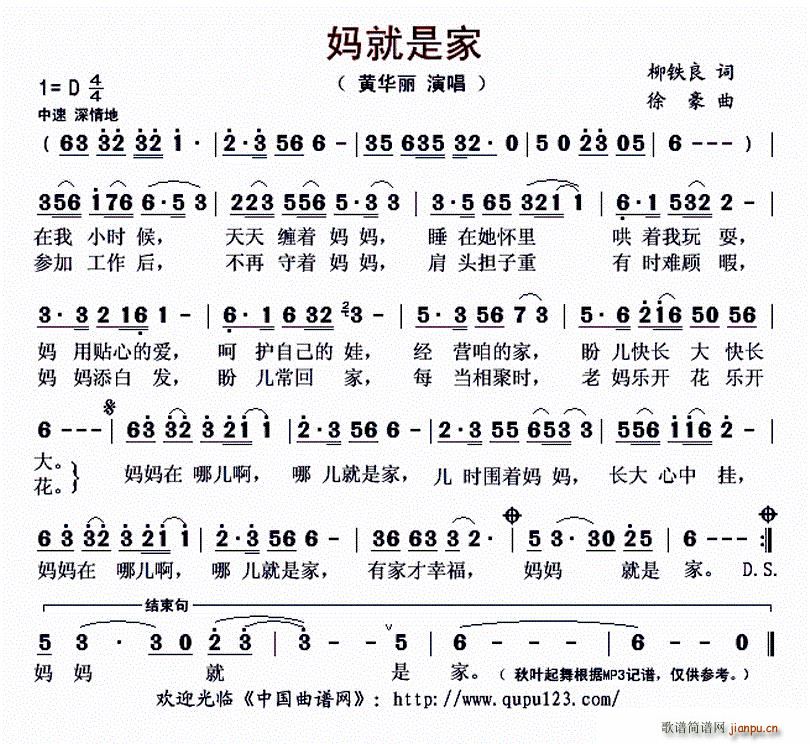 妈就是家
1=D 4/4
( 黄华丽 演唱 )
柳铁良 词
徐 豪 曲
中速 深情地
( 63 32 32 1 · | 2 · 3 56 6 - | 35 635 32 · 0 | 5 0 23 05 | 6 - - - ) |
356 176 6 · 5 3 | 223 556 5 · 3 3 | 3 · 5 65 321 1 | 6 · 1 532 2 - |
在我 小时 候， 天天 缠着 妈 妈， 睡 在她怀里 哄 着我玩 耍，
参加 工作 后， 不再 守着 妈 妈， 肩 头担子重 有 时难顾 暇，
3 · 3 2 16 1 - | 6 · 1 6 32 2/3 - | 5 · 3 56 7 3 | 5 · 6 216 50 56 |
妈 用贴心的爱， 呵 护自己的 娃， 经 营咱的家， 盼 儿快长 大 快长
妈 妈添白 发， 盼 儿常回 家， 每 当相聚时， 老 妈乐开 花 乐开
6 - - - | 63 32 3 21 1 | 2 · 3 56 6 - | 2 · 3 55 653 3 | 556 116 2 - |
大。 妈妈在 哪儿啊， 哪 儿就是家， 儿 时围着妈 妈， 长大 心中 挂，
花。
6 3 32 3 21 1 | 2 · 3 56 6 - | 36 63 3 2 · | 5 3 · 30 25 | 6 - - - :||
妈妈在 哪儿啊， 哪 儿就是家， 有家才幸福， 妈妈 就是 家。 D.S.
结束句
5 3 · 3 0 2 3 | 3 - - 5 | 6 - - - | 6 - - 0 ||
妈 妈 就 是 家。 (秋叶起舞根据MP3记谱，仅供参考。)
欢迎光临《中国曲谱网》：http://www.qupu123.com/
歌谱简谱网 jianpu.cn